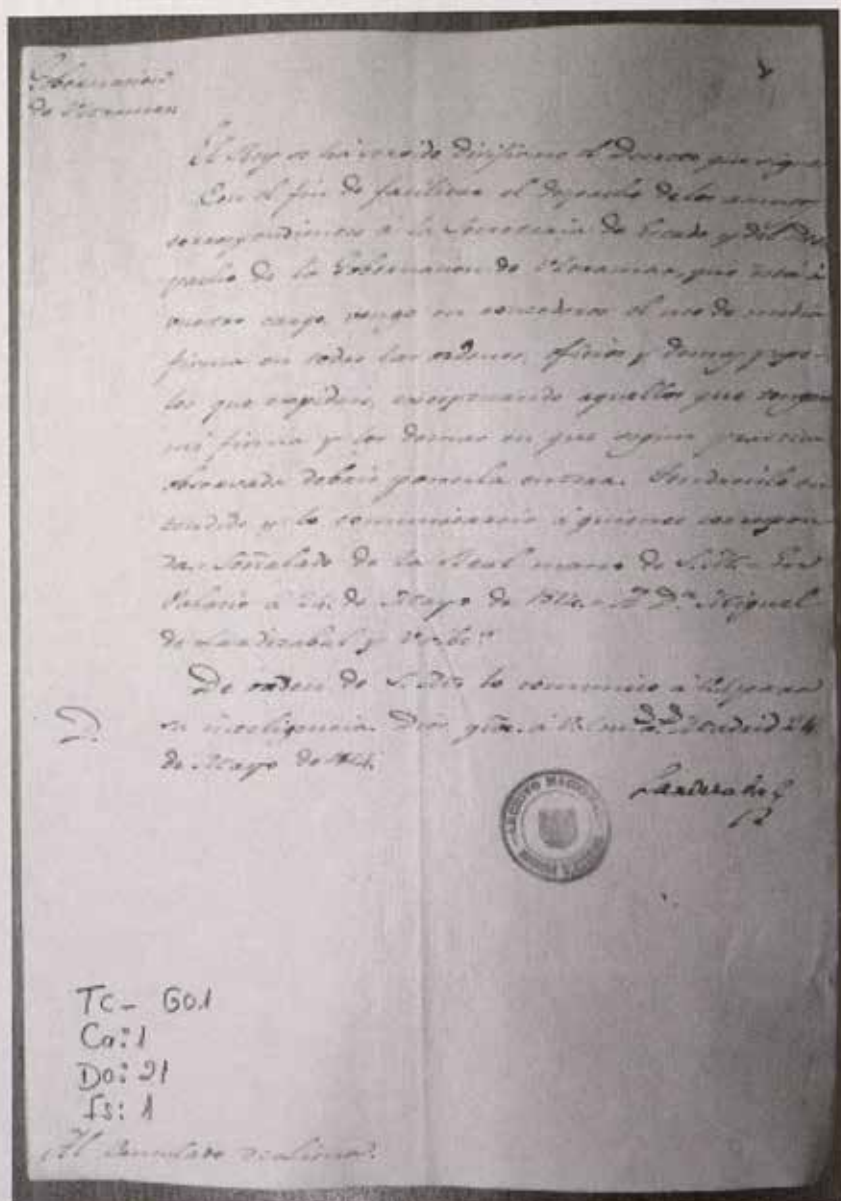 Gobernacion
de Ultramar
El Rey se ha servido dirigirme el Decreto que sigue
Con el fin de facilitar el despacho de los asuntos
correspondientes á la Secretaría de Estado y del Des-
pacho de la Gobernacion de Ultramar, que está á
vuestro cargo, vengo en concederos el uso de media
firma en todas las ordenes, oficios y demas pape-
les que expidais, exceptuando aquellos que tengan
mi firma y los demas en que segun practica
observada debais ponerla entera. Tendreislo en-
tendido y lo comunicareis á quienes correspon-
da. Señalado de la Real mano de S.M. En
Palacio á 24 de Mayo de 1814. A Dn. Miguel
de Lardizabal y Uribe"
De orden de S.M. lo comunico á
su inteligencia. Dios gue. á Madrid 24
de Mayo de 1814.
Lardizabal
ARCHIVO NACIONAL
TC- GO.1
Ca: 1
Do: 21
Is: 1
Al Consulado de Lima.